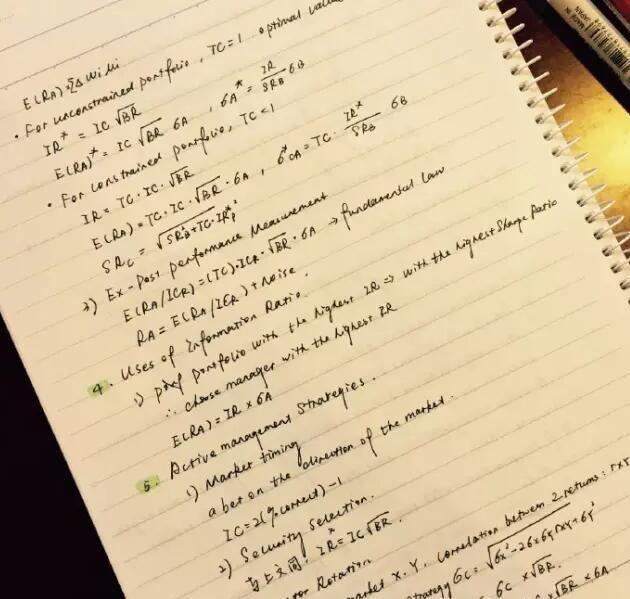 E(RA) = ΣΔwiμi
• For unconstrained portfolio, TC=1 optimal
IR* = IC √BR
E(RA)* = IC √BR σA, σA* = IR/SRB σB
• For constrained portfolio, TC<1
IR = TC·IC·√BR
E(RA) = TC·IC·√BR·σA, σ*CA = TC· IR*/SRB σB
SRC = √SRB²+TC²·IR*²
2) Ex-Post performance Measurement
E(RA/ICR) = (TC)·ICR·√BR·σA → fundamental law
RA = E(RA/ICR) + Noise.
4. Uses of Information Ratio.
1) pref portfolio with the highest IR ⇒ with the highest Sharpe Ratio
∴ choose manager with the highest IR
E(RA) = IR × σA
5. Active management Strategies.
1) Market timing
a bet on the direction of the market.
IC = 2(% correct) - 1
2) Security Selection.
与上文同. IR* = IC√BR.
Rotation
market X. Y. Correlation between 2 returns: rXY
strategy σC = √σx²-2σxσy rxy+σy²
σC × √BR.
× √BR × σA